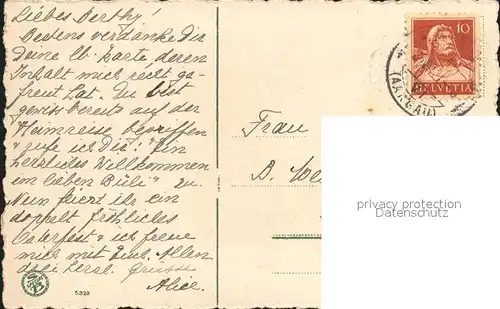 Liebes Berthy!
Bestens verdanke dir
Deine lb. Karte, deren
Inhalt mich recht ge-
freut hat. Du bist
gewiss bereits auf der
Heimreise begriffen
& rufe ich Dir: "Ein
herzliches Willkommen
im lieben Büli" zu.
Nun feiert ihr ein
doppelt fröhliches
Osterfest & ich freue
mich mit Euch. Allen
drei herzl. Grüsse
Alice.
5323
Frau
B. 
10
HELVETIA
(AARGAU)
privacy protection
Datenschutz